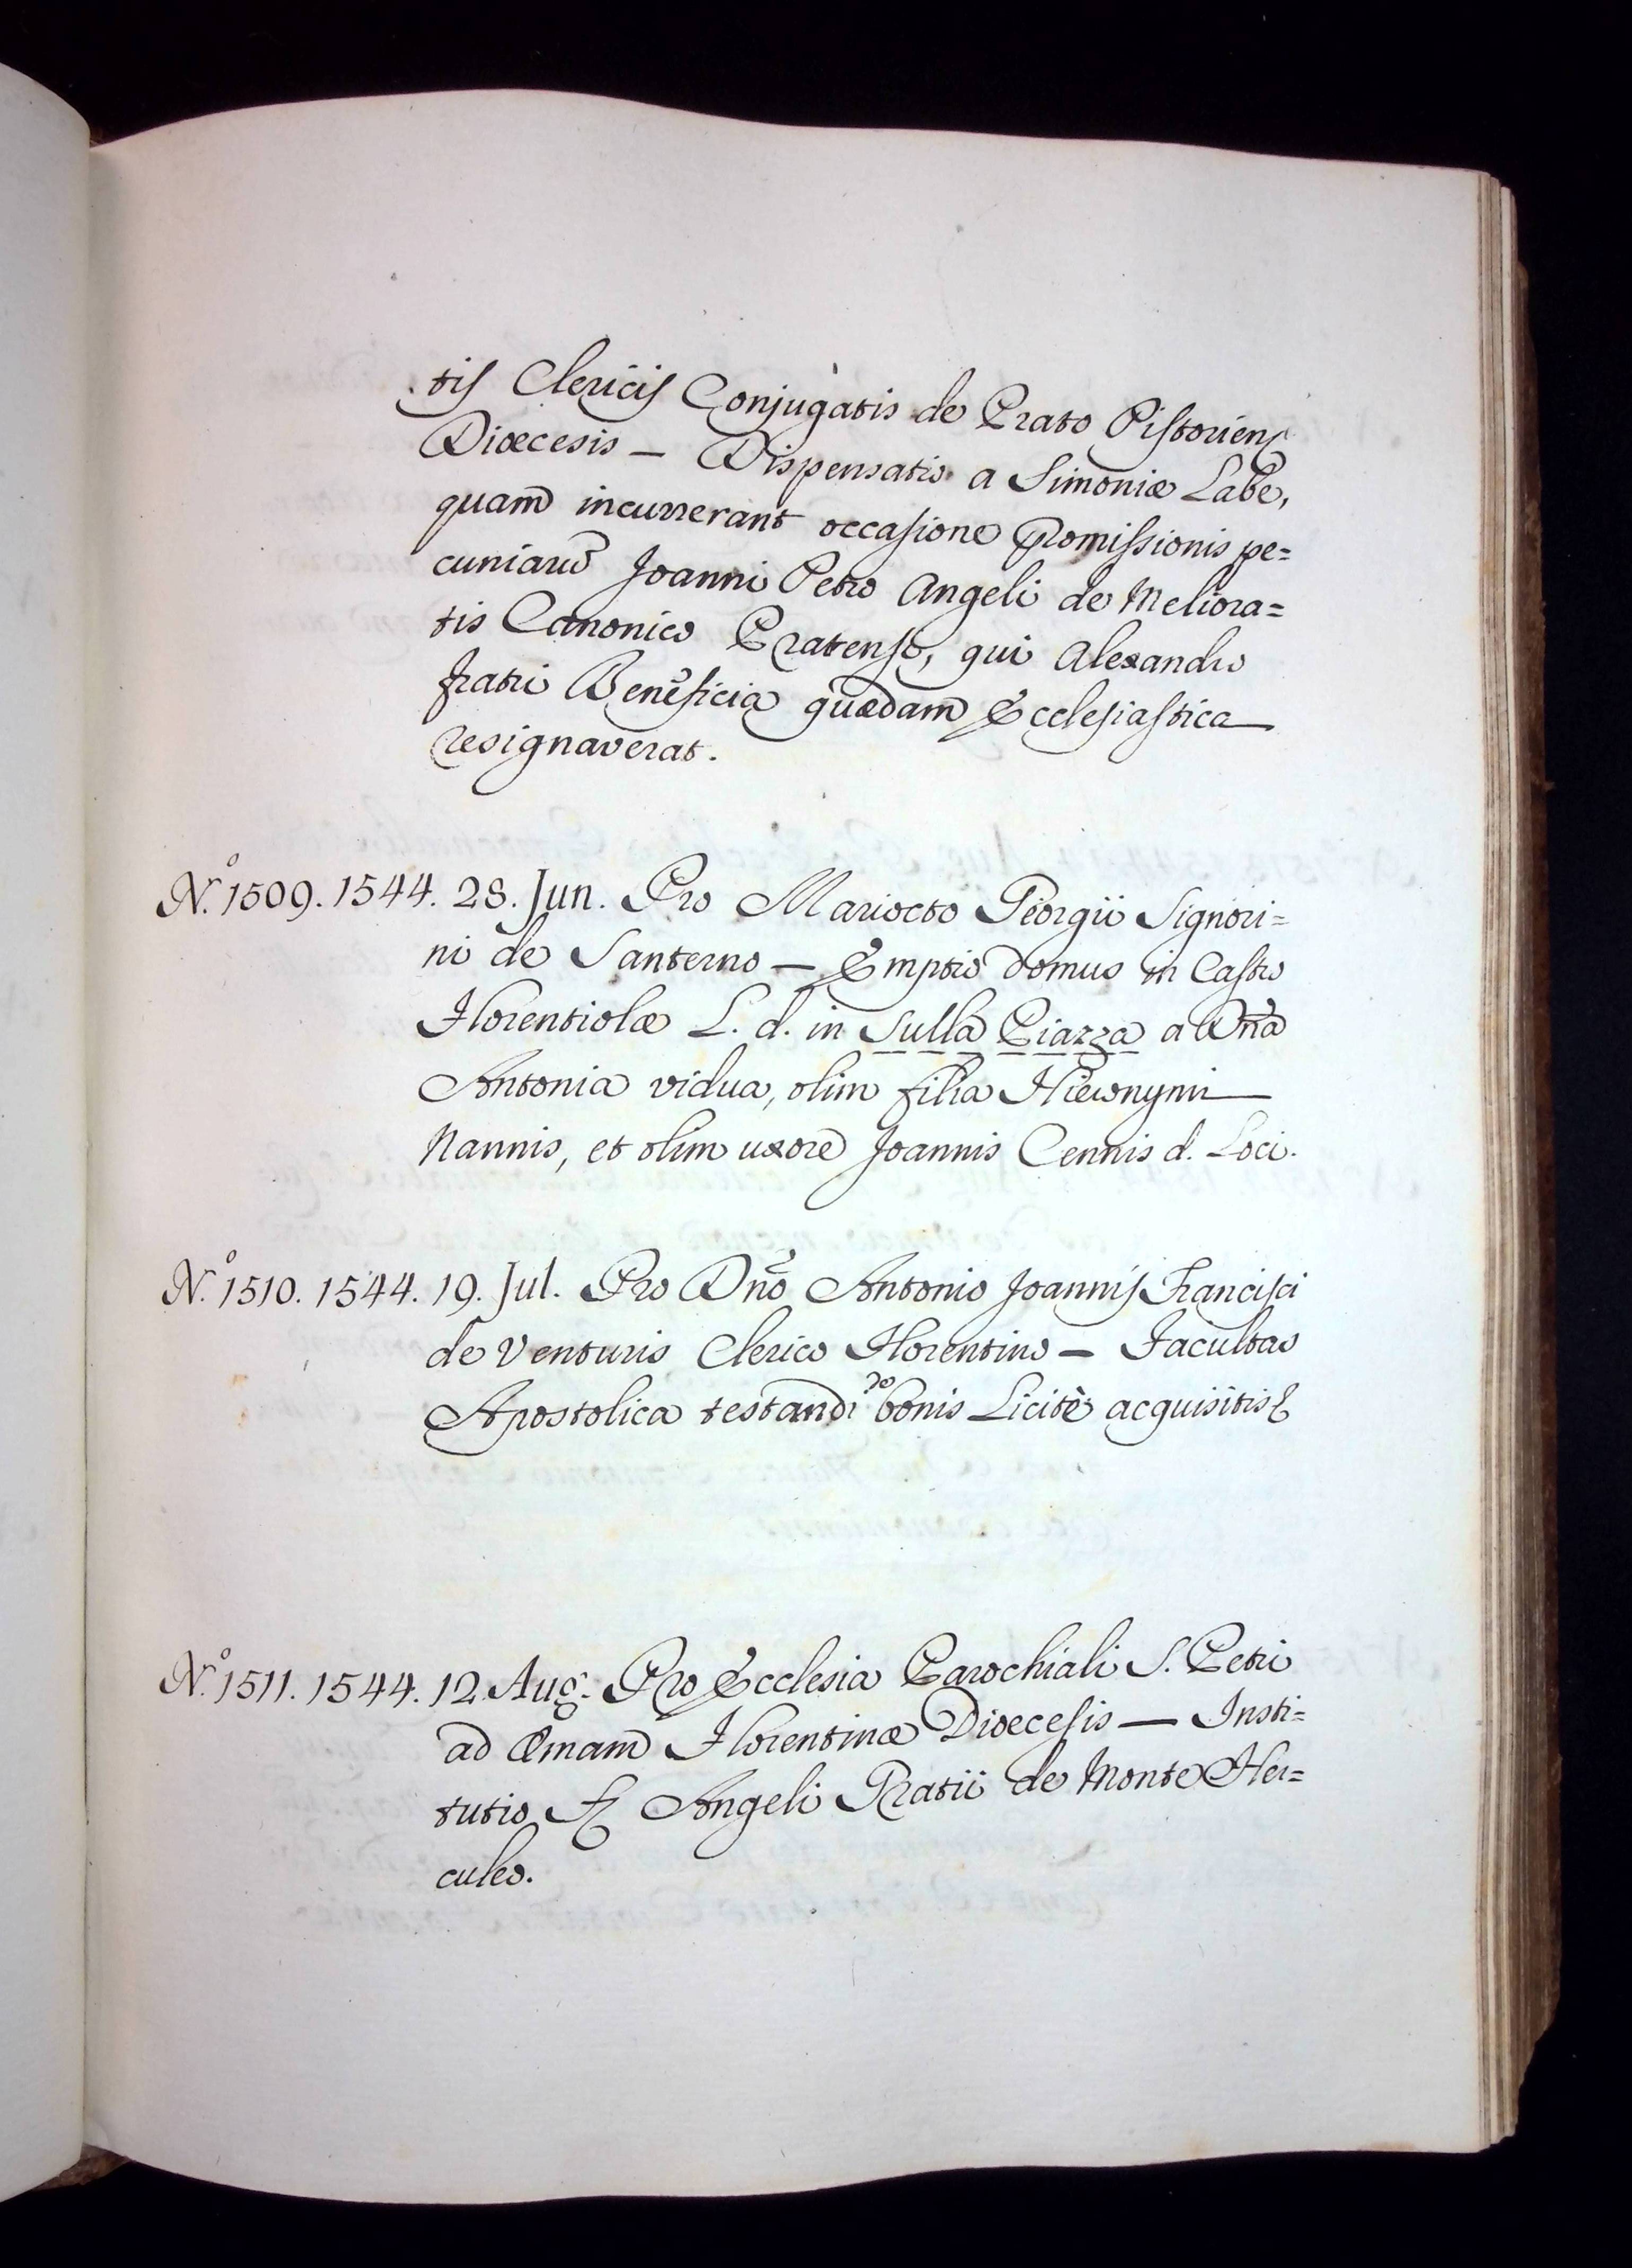 tis Clericis Conjugatis de Prato Pistoriens
Diœcesis — Dispensatio a Simoniæ Labe,
quam incurrerant occasione Promissionis pe=
cuniarũ Joanni Petro Angeli de Meliora=
tis Canonico Pratense, qui Alexandro
fratri Beneficia quædam Ecclesiastica
resignaverat.
N.º 1509. 1544. 28. Jun. Pro Mariocto Georgii Signori=
ni de Santerno — Emptio domus in Castro
Florentiolæ L. d. in Sulla Piazza a Dña
Antonia vidua, olim filia Hieronymi
Nannis, et olim uxore Joannis Cennis d. Loci.
N.º 1510. 1544. 19. Jul. Pro Dño Antonio Joannis Francisci
de Venturis Clerico Florentino — Facultas
Apostolica testandi de bonis Licitè acquisitis
N.º 1511. 1544. 12. Aug. Pro Ecclesia Parochiali S. Petri
ad Emam Florentinæ Diœcesis — Insti=
tutio Angeli Pratii de Monte Her=
culeo.